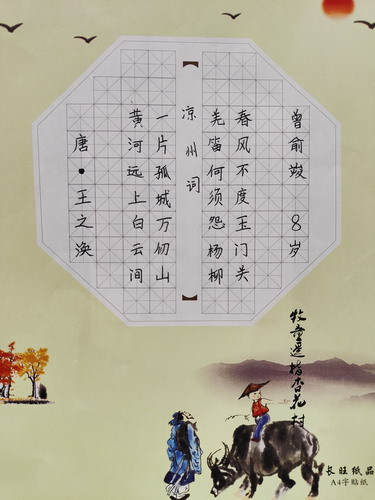 凉州词
唐·王之涣
黄河远上白云间
一片孤城万仞山
羌笛何须怨杨柳
春风不度玉门关
曾俞竣 8岁
牧童遥指杏花村
长旺纸品
A4字贴纸